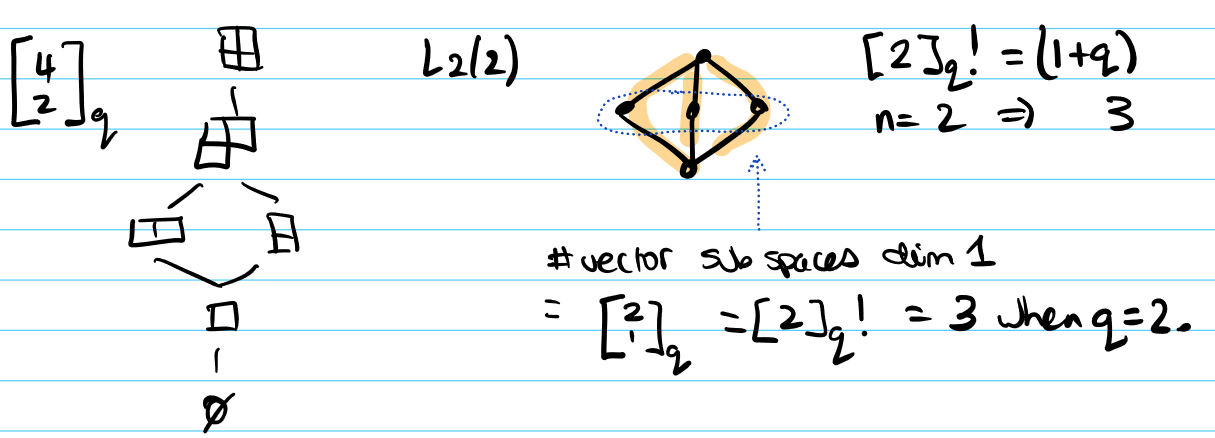 [4 2]_q
L2(2)
[2]_q! = (1+q)
n= 2 ⇒ 3
# vector sub spaces dim 1
= [2 1]_q = [2]_q! = 3 when q=2.
∅